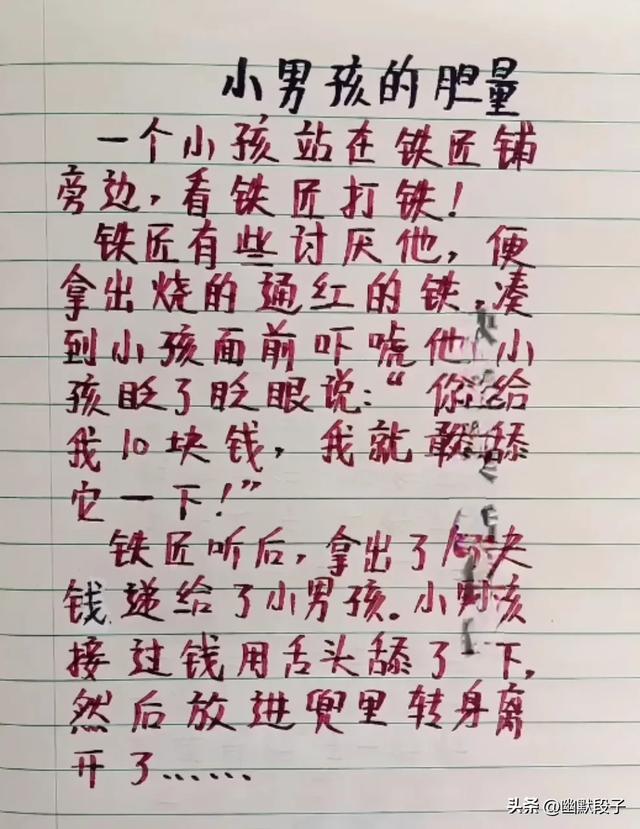 小男孩的胆量
一个小孩站在铁匠铺
旁边，看铁匠打铁！
铁匠有些讨厌他，便
拿出烧的通红的铁，凑
到小孩面前吓唬他，小
孩眨了眨眼说：“你给
我10块钱，我就敢舔
它一下！”
铁匠听后，拿出了块
钱递给了小男孩。小男孩
接过钱用舌头舔了一下，
然后放进兜里转身离
开了……
头条 @幽默段子